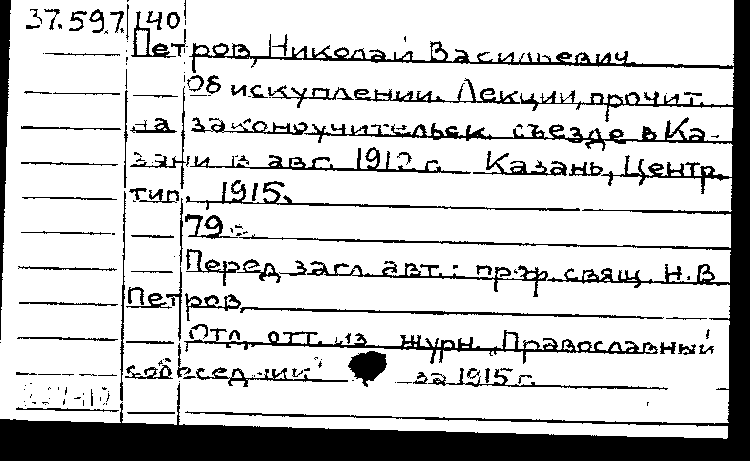 37.597.140
Петров, Николай Васильевич.
Об искуплении. Лекции, прочит.
на законоучительск. съезде в Ка-
зани в авг. г. Казань, Центр.
тип., 1915.
79 с.
Перед загл. авт.: проф. свящ. Н.В.
Петров.
Отд. отт. из журн. „Православный
собеседник" за 1915 г.